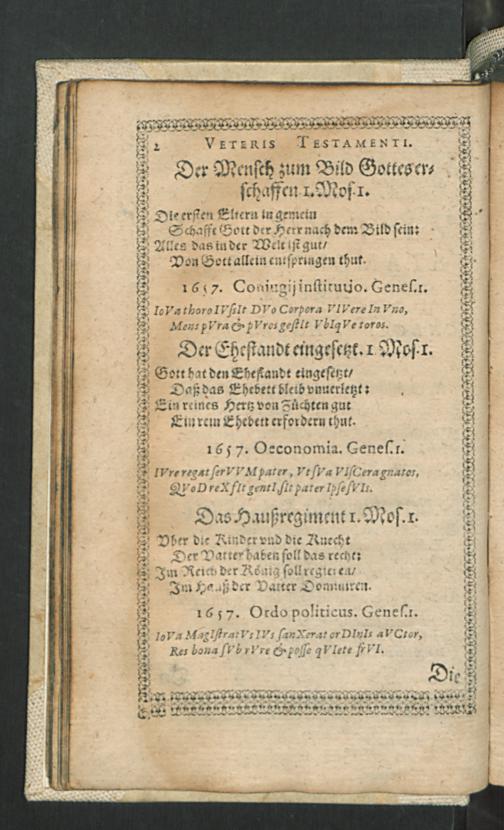 2 VETERIS TESTAMENTI.
Der Mensch zum Bild Gottes er⸗
schaffen 1. Mos. 1.
Die ersten Eltern in gemein
Schaffe Gott der Herr nach dem Bild sein:
Alles das in der Welt ist gut/
Von Gott allein entspringen thut.
1657. Coniugij institutio. Genes. 1.
IoVa thoro IVsIt DVo Corpora VIVere In Vno,
Mens pVra & pVros gestIt VbIqVe toros.
Der Ehestandt eingesetzt. 1 Mos. 1.
Gott hat den Ehestandt eingesetzt/
Daß das Ehebett bleib vnuerletzt:
Ein reines Hertz von Züchten gut
Ein rein Ehebett erfordern thut.
1657. Oeconomia. Genes. 1.
IVre regat ferVVM pater, VtsVa VIsCera gnatos,
QVoD reX sIt gentI, sit pater Ipse sVIs.
Das Haußregiment 1. Mos. 1.
Vber die Kinder vnd die Knecht
Der Vatter haben soll das recht:
Im Reich der König soll
Im Hauß der Vatter Dominiren.
1657. Ordo politicus. Genes. 1.
IoVa MagIstratVs IVs sanXerat orDInIs aVCtor,
Res bona sVb rVre & posse qVIete frVI.
Die